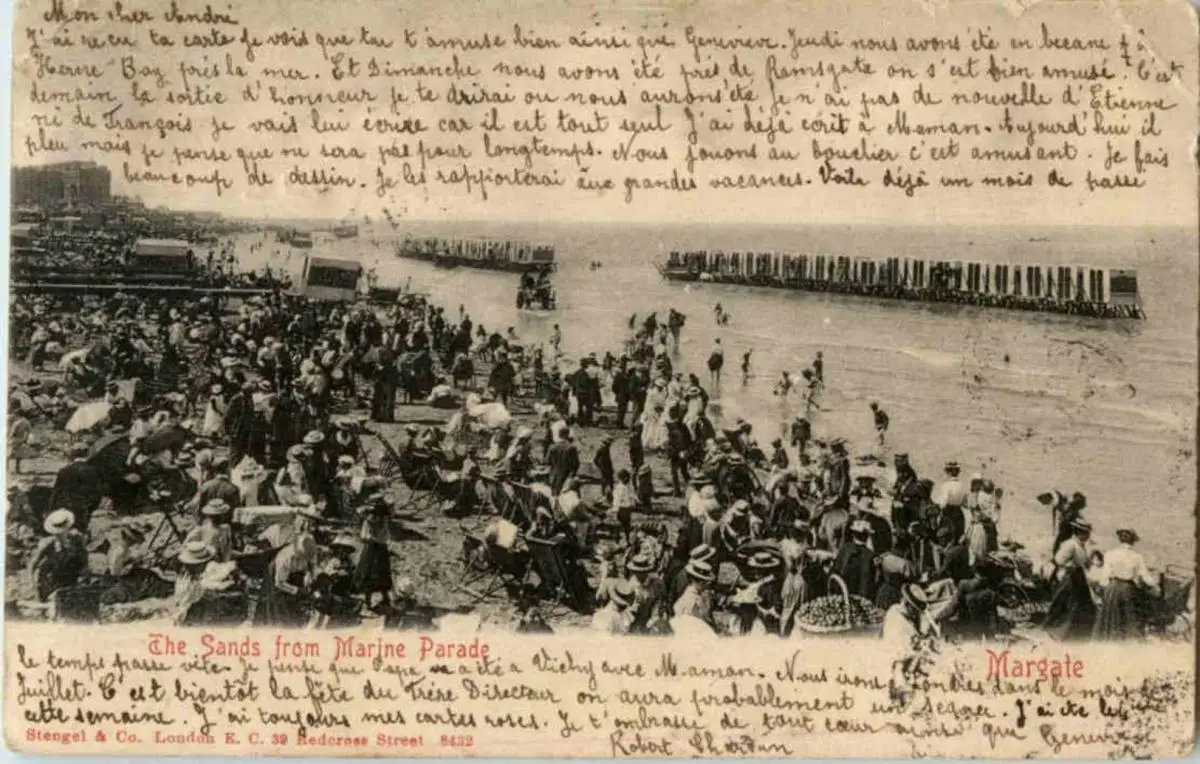 Mon cher André
J'ai reçu ta carte je vois que tu t'amuse bien ainsi que Genevieve. Jeudi nous avons été en becane à
Herne Bay près la mer. Et Dimanche nous avons été près de Ramsgate on s'est bien amusé. C'est
demain la sortie d'honneur je te drirai ou nous aurons été je n'ai pas de nouvelle d'Etienne
ni de François je vais lui écrire car il est tout seul J'ai déjà écrit à Maman. Aujourd'hui il
pleu mais je pense que ne sera pas pour longtemps. Nous jouons au bouclier c'est amusant. Je fais
beaucoup de dessin. Je les rapporterai aux grandes vacances. Voila déjà un mois de passé
The Sands from Marine Parade
Margate
le temps passe vite. Je pense que Papa a été a Vichy avec Maman. Nous irons Londres dans le mois de
Juillet. C'est bientôt la fête du Frère Directeur on aura probablement un
J'ai été le
cette semaine. J'ai toujours mes cartes roses. Je t'embrasse de tout cœur ainsi que Genevieve
Stengel & Co. London E. C. 39 Redcross Street 8432
Robert